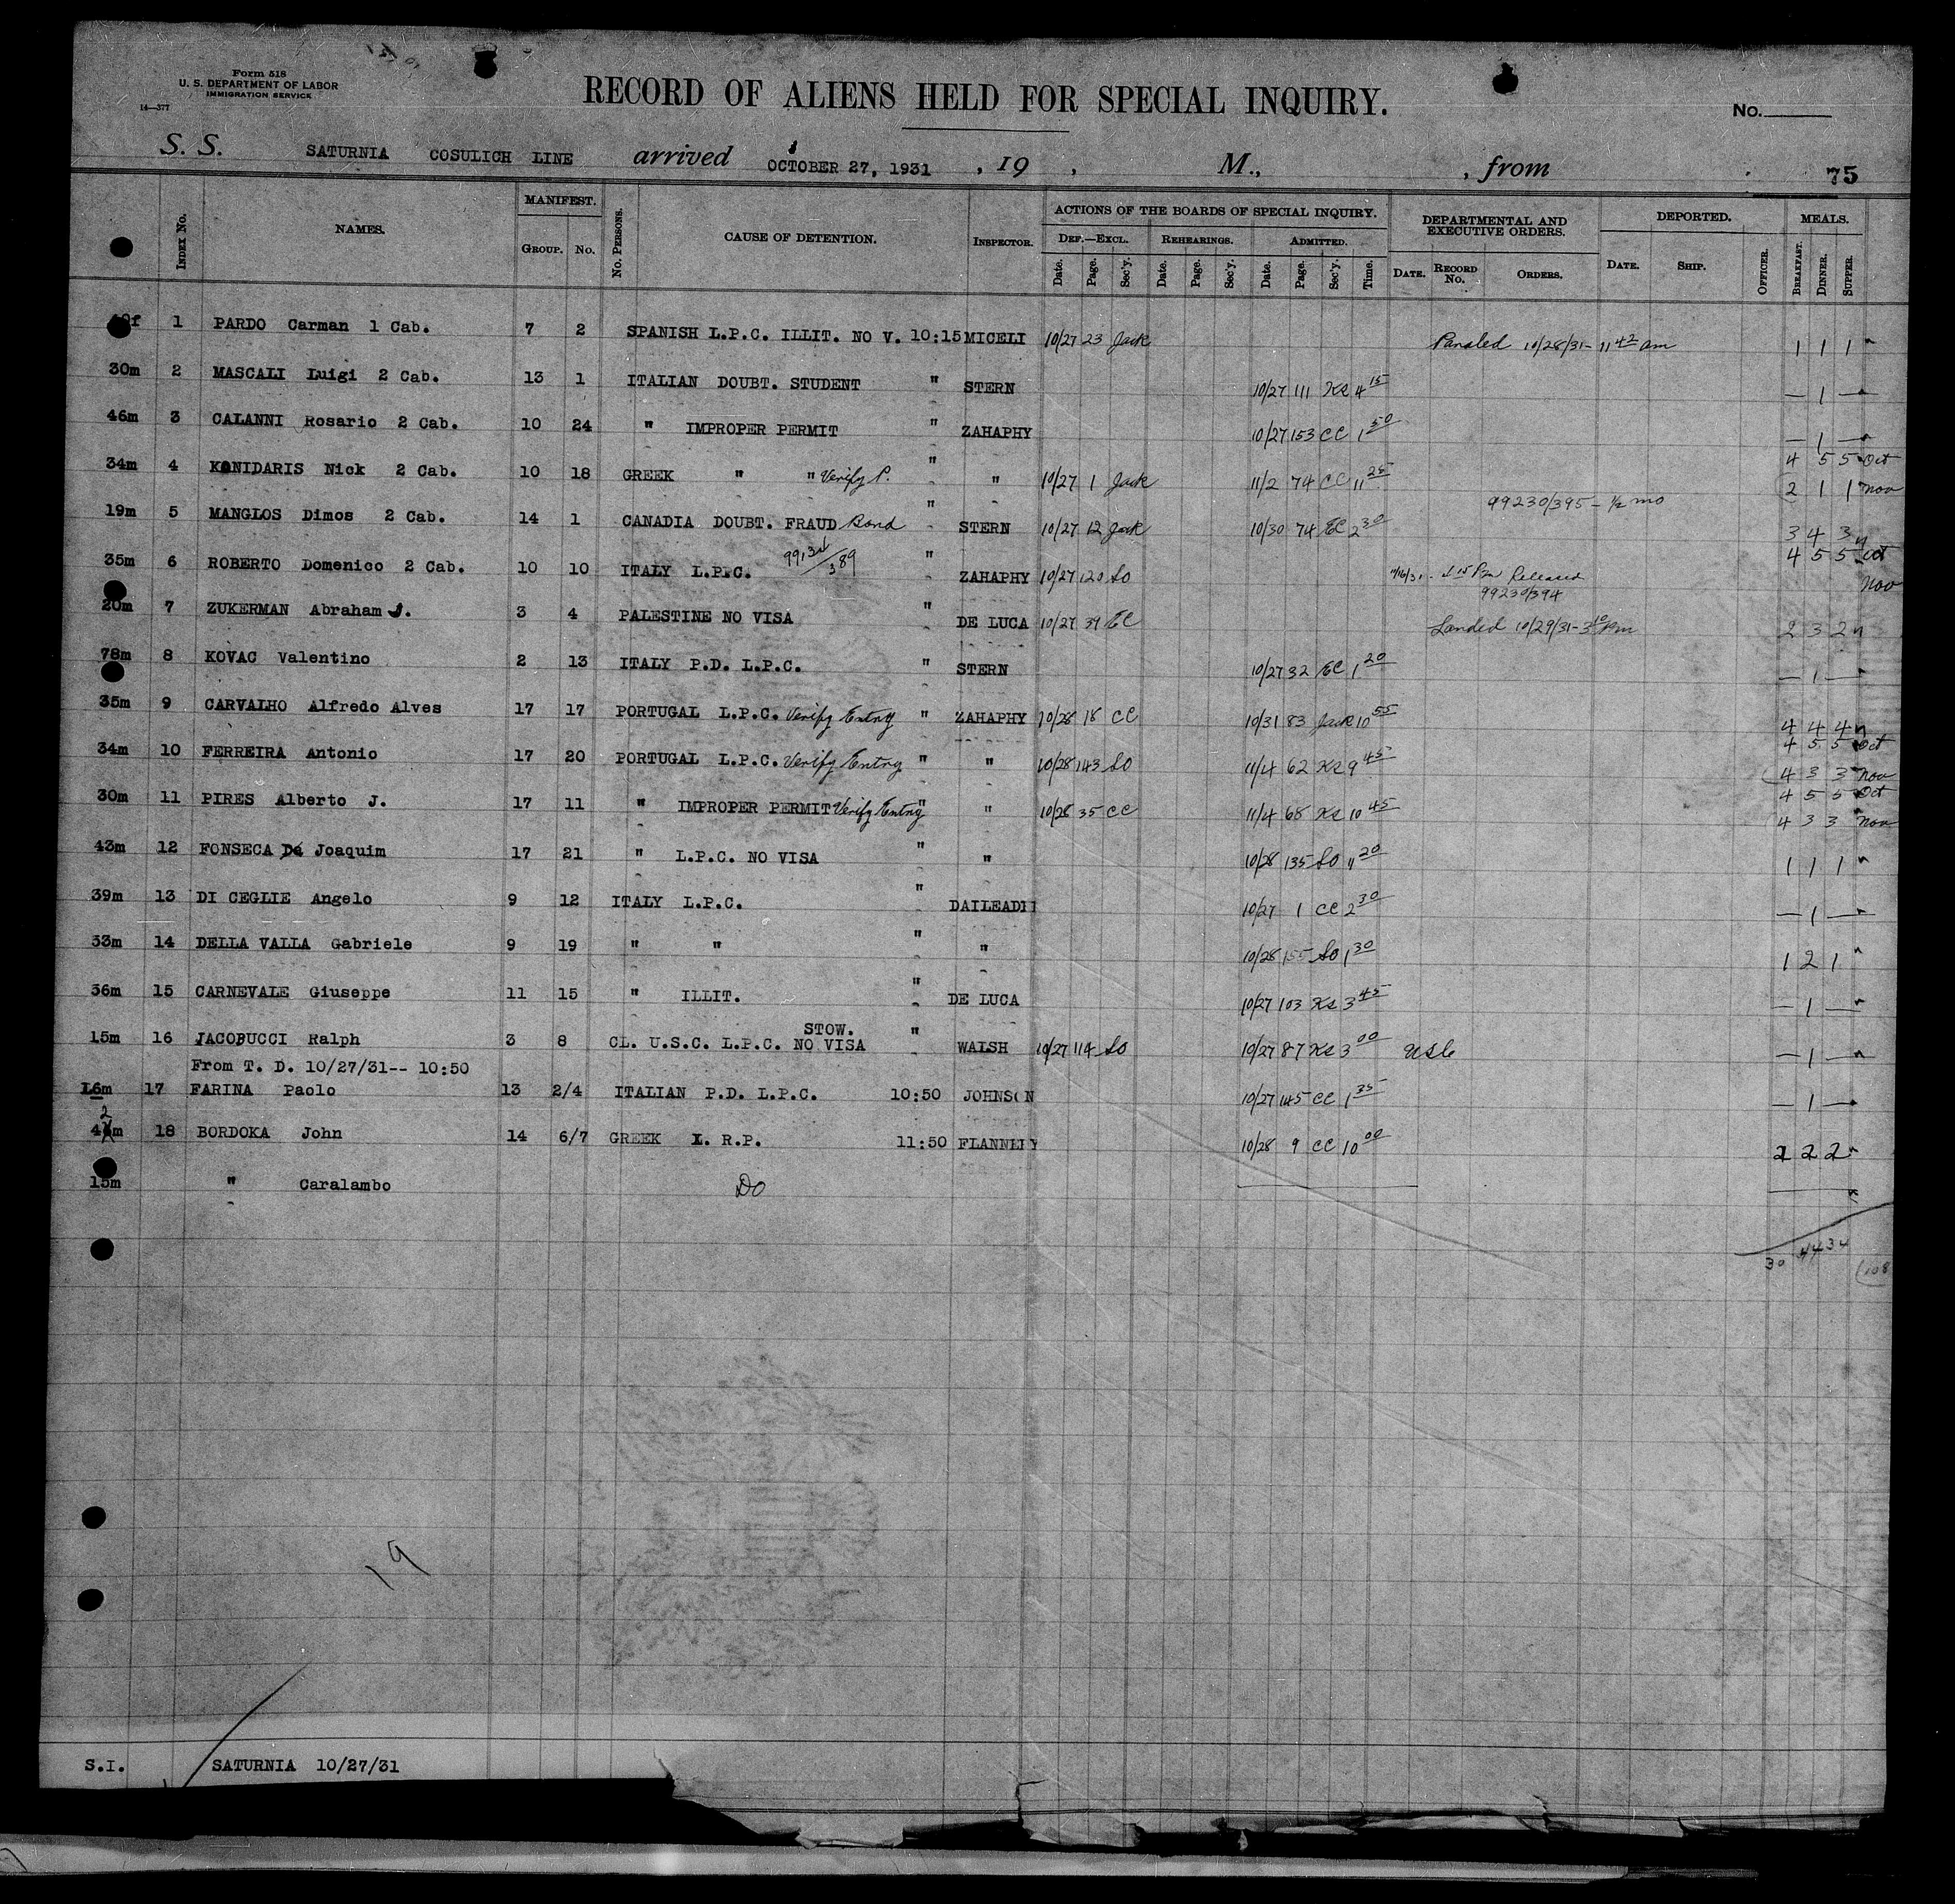 Form 518
U. S. DEPARTMENT OF LABOR
IMMIGRATION SERVICE
14—377
RECORD OF ALIENS HELD FOR SPECIAL INQUIRY.
No.
S. S. SATURNIA COSULICH LINE arrived OCTOBER 27, 1931 , 19 , M., , from 75
INDEX No. NAMES. MANIFEST. GROUP. No. No. PERSONS. CAUSE OF DETENTION. INSPECTOR. ACTIONS OF THE BOARDS OF SPECIAL INQUIRY. DEF.—EXCL. Date. Page. Sec'y. REHEARINGS. Date. Page. Sec'y. ADMITTED. Date. Page. Sec'y. Time. DEPARTMENTAL AND EXECUTIVE ORDERS. DATE. RECORD No. ORDERS. DEPORTED. DATE. SHIP. OFFICER. MEALS. BREAKFAST. DINNER. SUPPER.
1 PARDO Carman 1 Cab. 7 2 SPANISH L.P.C. ILLIT. NO V. 10:15 MICELI 10/27 23 Jack 10/28/31- 11 42 am 1 1 1
30m 2 MASCALI Luigi 2 Cab. 13 1 ITALIAN DOUBT. STUDENT " STERN 10/27 111 Ks 4 15 — 1 —
46m 3 CALANNI Rosario 2 Cab. 10 24 " IMPROPER PERMIT " ZAHAPHY 10/27 153 CC 1 50 — 1 —
4 5 5 Oct
34m 4 KONIDARIS Nick 2 Cab. 10 18 GREEK " " Verify P. " " 10/27 1 Jack 11/2 74 CC 11 25 2 1 1 Nov
99230/395 - ½ mo
19m 5 MANGLOS Dimos 2 Cab. 14 1 CANADIA DOUBT. FRAUD Bond " STERN 10/27 12 Jack 10/30 74 EC 2 30 3 4 3
4 5 5 Oct
35m 6 ROBERTO Domenico 2 Cab. 10 10 ITALY L.P.C. " ZAHAPHY 10/27 120 So Pm Released Nov
99230/394
20m 7 ZUKERMAN Abraham J. 3 4 PALESTINE NO VISA " DE LUCA 10/27 39 EC Landed 10/29/31-3 10 Pm 2 3 2
78m 8 KOVAC Valentino 2 13 ITALY P.D. L.P.C. " STERN 10/27 32 EC 1 20 — 1 —
35m 9 CARVALHO Alfredo Alves 17 17 PORTUGAL L.P.C. Verify Entry " ZAHAPHY 10/28 18 CC 10/31 83 Jack 10 55 4 4 4
4 5 5 Oct
34m 10 FERREIRA Antonio 17 20 PORTUGAL L.P.C. Verify Entry " " 10/28 143 So 11/4 62 Ks 9 45 4 3 3 Nov
4 5 5 Oct
30m 11 PIRES Alberto J. 17 11 " IMPROPER PERMIT Verify Entry " " 10/28 35 CC 11/4 68 Ks 10 45 4 3 3 Nov
43m 12 FONSECA De Joaquim 17 21 " L.P.C. NO VISA " " 10/28 135 So 11 20 1 1 1
39m 13 DI CEGLIE Angelo 9 12 ITALY L.P.C. " 10/27 1 CC 2 30 — 1 —
33m 14 DELLA VALLA Gabriele 9 19 " " " " 10/28 155 So 1 30 1 2 1
36m 15 CARNEVALE Giuseppe 11 15 " ILLIT. " DE LUCA 10/27 103 Ks 3 45 — 1 —
STOW.
15m 16 JACOBUCCI Ralph 3 8 CL. U.S.C. L.P.C. NO VISA " WALSH 10/27 114 So 10/27 87 Ks 3 00 USC — 1 —
From T. D. 10/27/31-- 10:50
16m 17 FARINA Paolo 13 2/4 ITALIAN P.D. L.P.C. 10:50 JOHNSON 10/27 145 CC 1 35 — 1 —
42m 18 BORDOKA John 14 6/7 GREEK I. R.P. 11:50 FLANNELY 10/28 9 CC 10 00 2 2 2
15m " Caralambo Do
30 44 34
108
19
S.I. SATURNIA 10/27/31